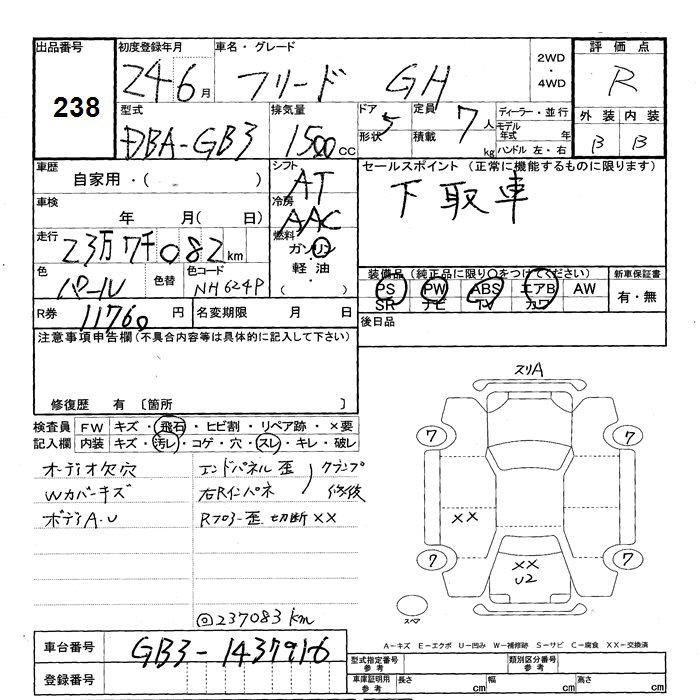 出品番号
238
初度登録年月
24 6月
車名・グレード
フリード GH
2WD
・
4WD
評価点
R
型式
DBA-GB3
排気量
1500 CC
ドア
5
形状
定員
7人
積載 kg
ディーラー・並行
モデル年式 年
ハンドル 左・右
外装 内装
B B
車歴
自家用・( )
シフト
AT
セールスポイント (正常に機能するものに限ります)
下取車
車検
年 月( 日)
冷房
AAC
走行
23万7千082km
燃料
ガソリン
軽油
( ・ )
色
パール
色替
色コード
NH624P
装備品(純正品に限り○をつけてください)
PS PW ABS エアB AW
SR ナビ TV カワ
新車保証書
有・無
R券
11760円
名変期限 月 日
後日品
注意事項申告欄(不具合内容等は具体的に記入して下さい)
修復歴 有 〔箇所 〕
検査員
記入欄
FW キズ・飛石・ヒビ割・リペア跡・×要
内装 キズ・汚レ・コゲ・穴・スレ・キレ・破レ
オーディオ欠穴
Wカバーキズ
ボディA.U
エンドパネル歪
右Rインパネ
クランプ
修復
Rフロアー歪.切断××
◎237083km
スリA
7
7
××
7
7
××
U2
スペア
車台番号
GB3-1437916
登録番号
A-キズ E-エクボ U-凹み W-補修跡 S-サビ C-腐食 XX-交換済
型式指定番号
参考
類別区分番号
参考
車庫証明用
参考
長さ cm
幅 cm
高さ cm